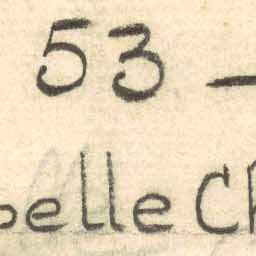 53 –
pelle Ch